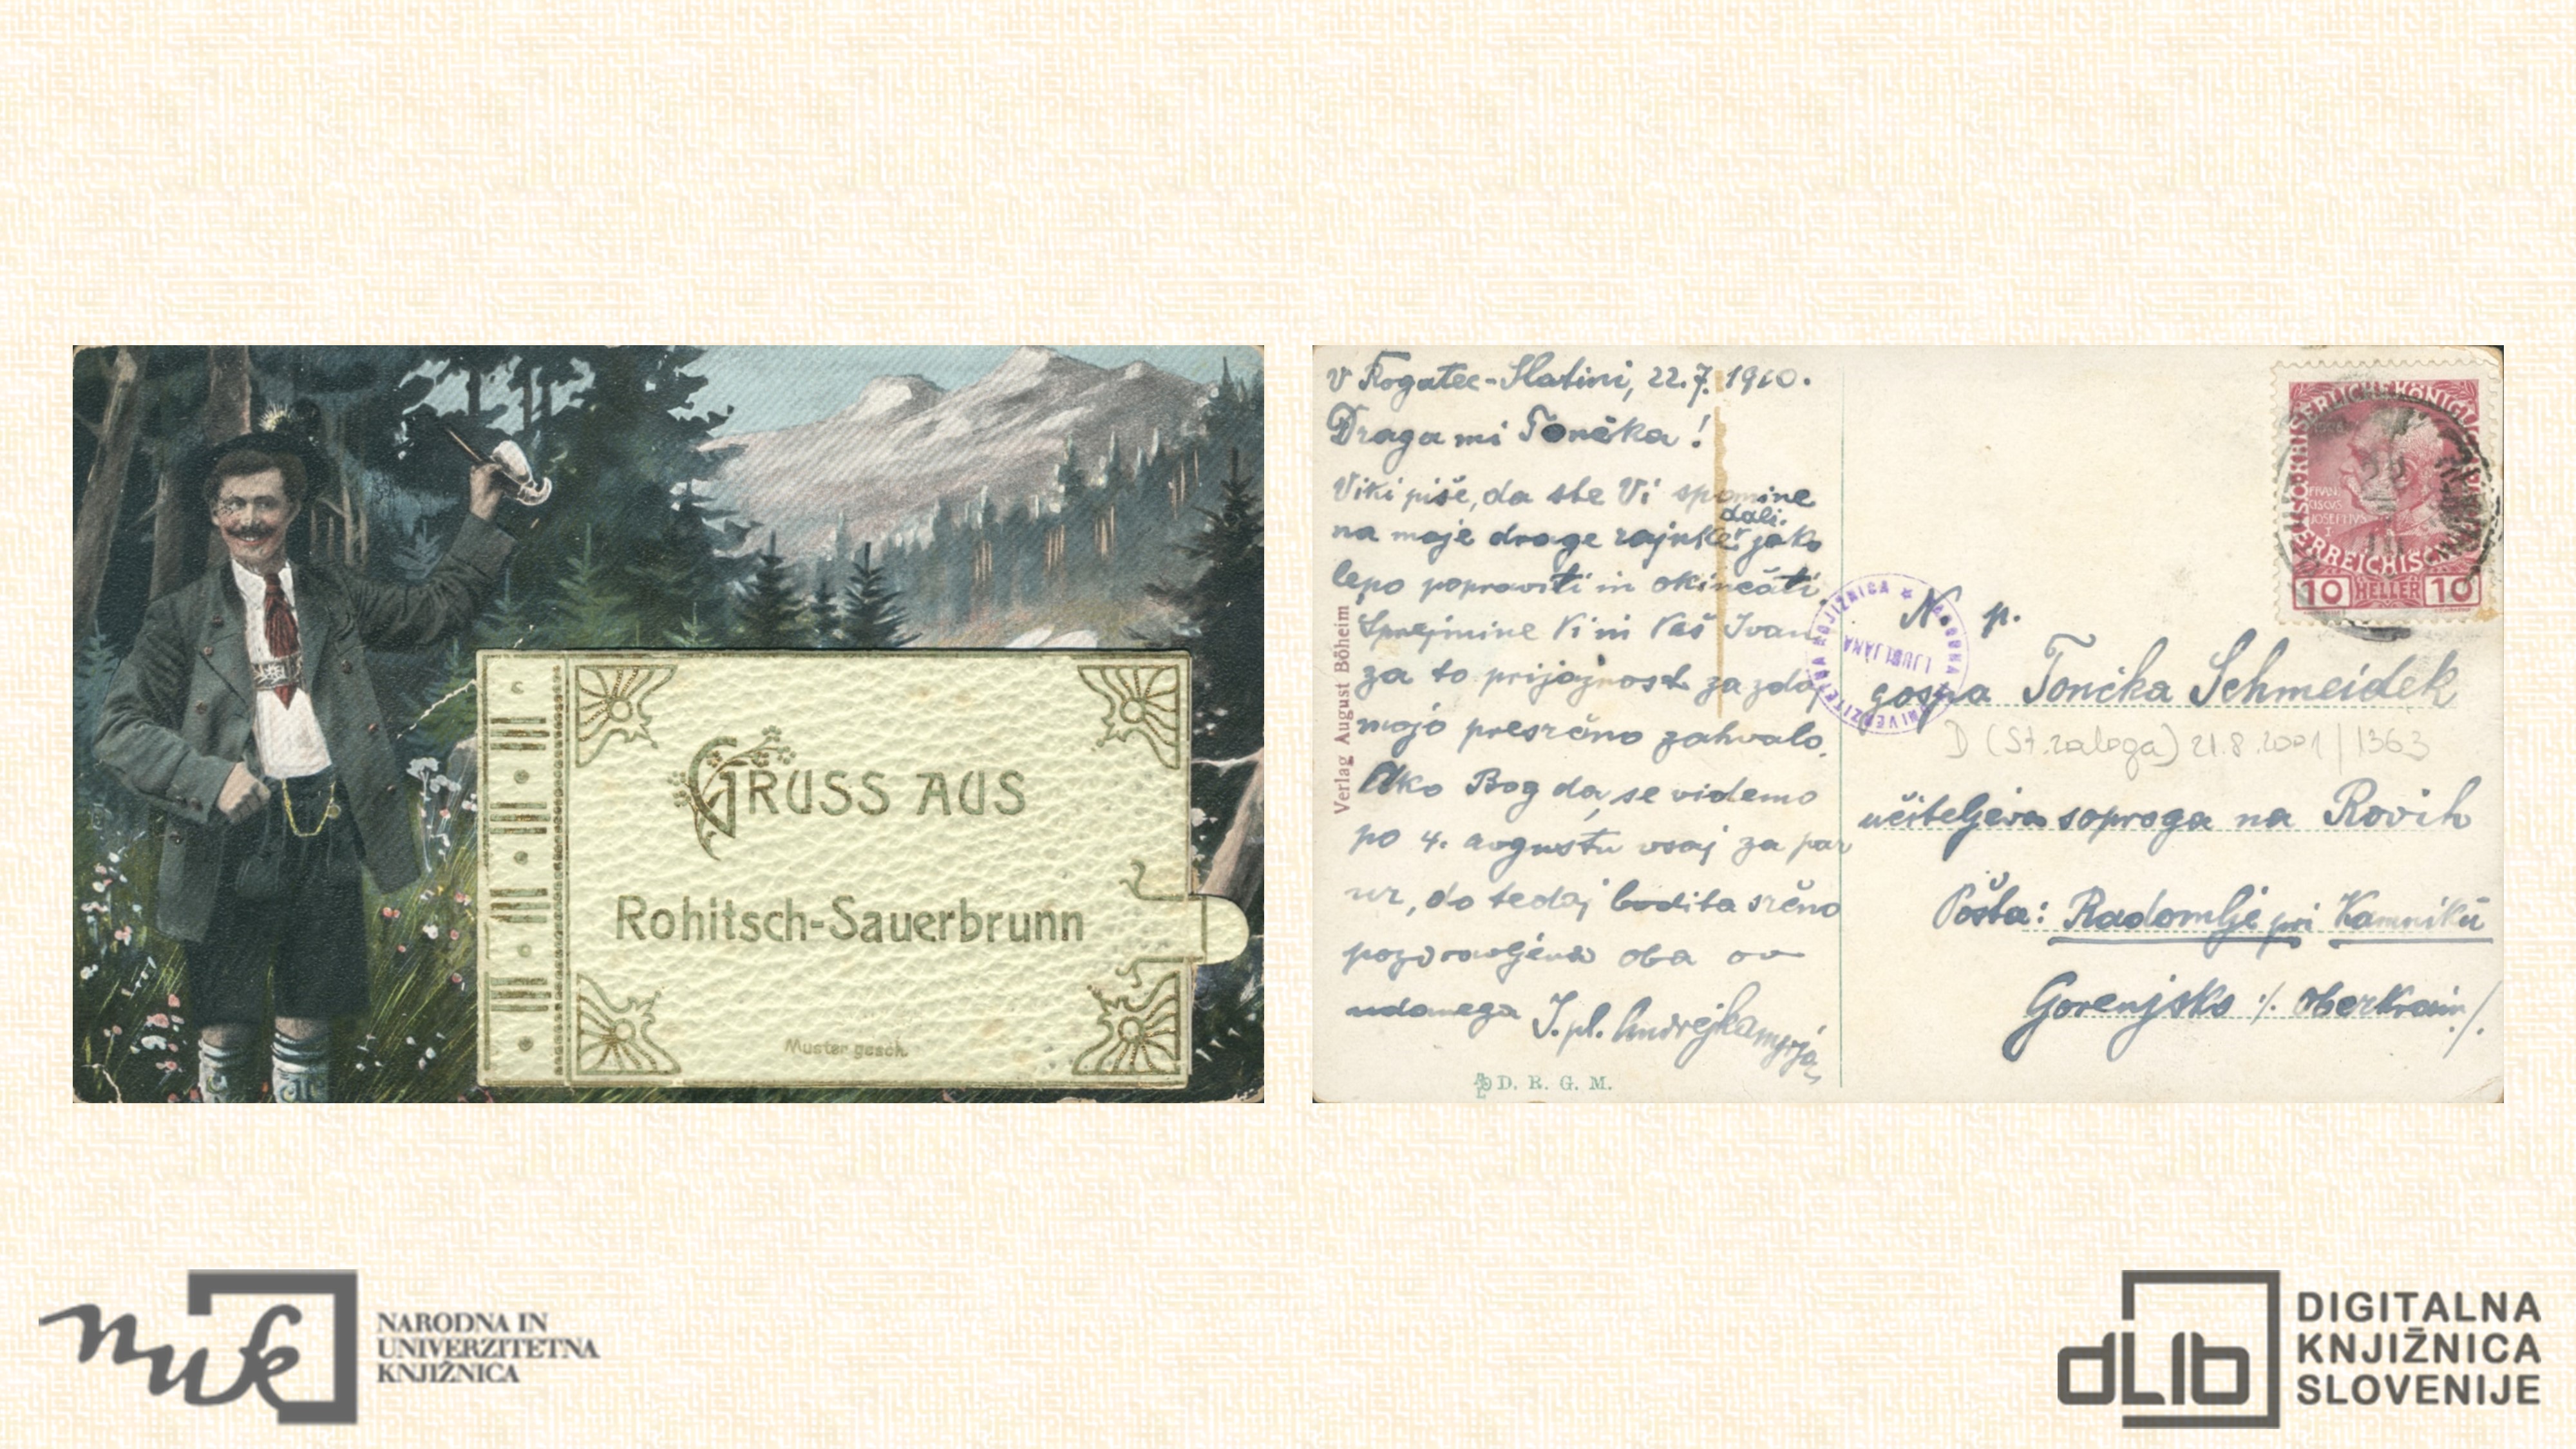 GRUSS AUS
Rohitsch-Sauerbrunn
Muster gesch.
v Rogatec-Slatini, 22.7. 1910.
Draga mi Tončka!
Viki piše, da ste Vi spomine
dali
na moje drage rajnke jako
lepo popraviti in okinčati.
Sprejmine Vi in Vaš Ivan
za to prijaznost za zdaj
mojo presrčno zahvalo.
Ako Bog da, se videmo
po 4. avgustu vsaj za par
ur, do tedaj bodita srčno
pozdravljena oba
udanega I. pl.
Verlag August Böheim
D. R. G. M.
KAISERLICHE KÖNIGLICHE
ÖSTERREICHISCHE
10 HELLER 10
NARODNA UNIVERZITETNA KNJIŽNICA
LJUBLJANA
N. p.
gospa Tončka Schmeidek
D (St. zaloga) 21.8.2001 | 1363
učiteljeva soproga na Rovih
Pošta: Radomlje pri Kamniku
Gorenjsko ./. Oberkrain ./.
nuk
NARODNA IN
UNIVERZITETNA
KNJIŽNICA
dLib
DIGITALNA
KNJIŽNICA
SLOVENIJE